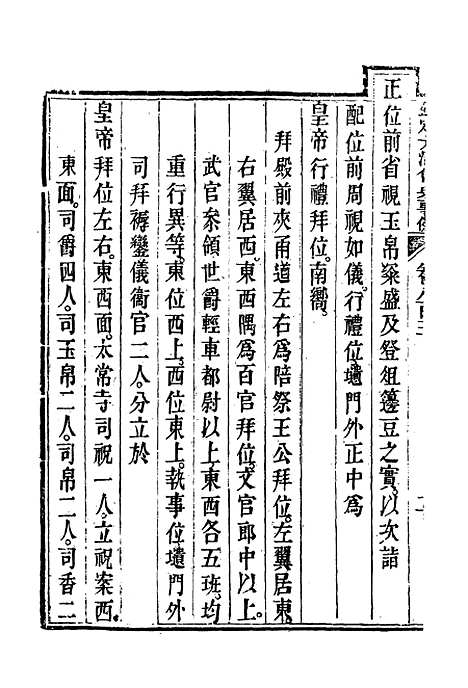 正位前省視玉帛粢盛及登俎籩豆之實以次詣
配位前周視如儀。行禮位壝門外正中為
皇帝行禮拜位。南嚮。
拜殿前夾甬道左右為陪祭王公拜位。左翼居東。
右翼居西。東西隅為百官拜位。文官郎中以上。
武官叅領世爵輕車都尉以上。東西各五班。均
重行異等。東位西上。西位東上。執事位壝門外
司拜褥鑾儀衞官二人。分立於
皇帝拜位左右。東西面。太常寺司祝一人。立祝案西
東面。司爵四人。司玉帛二人。司帛二人。司香二